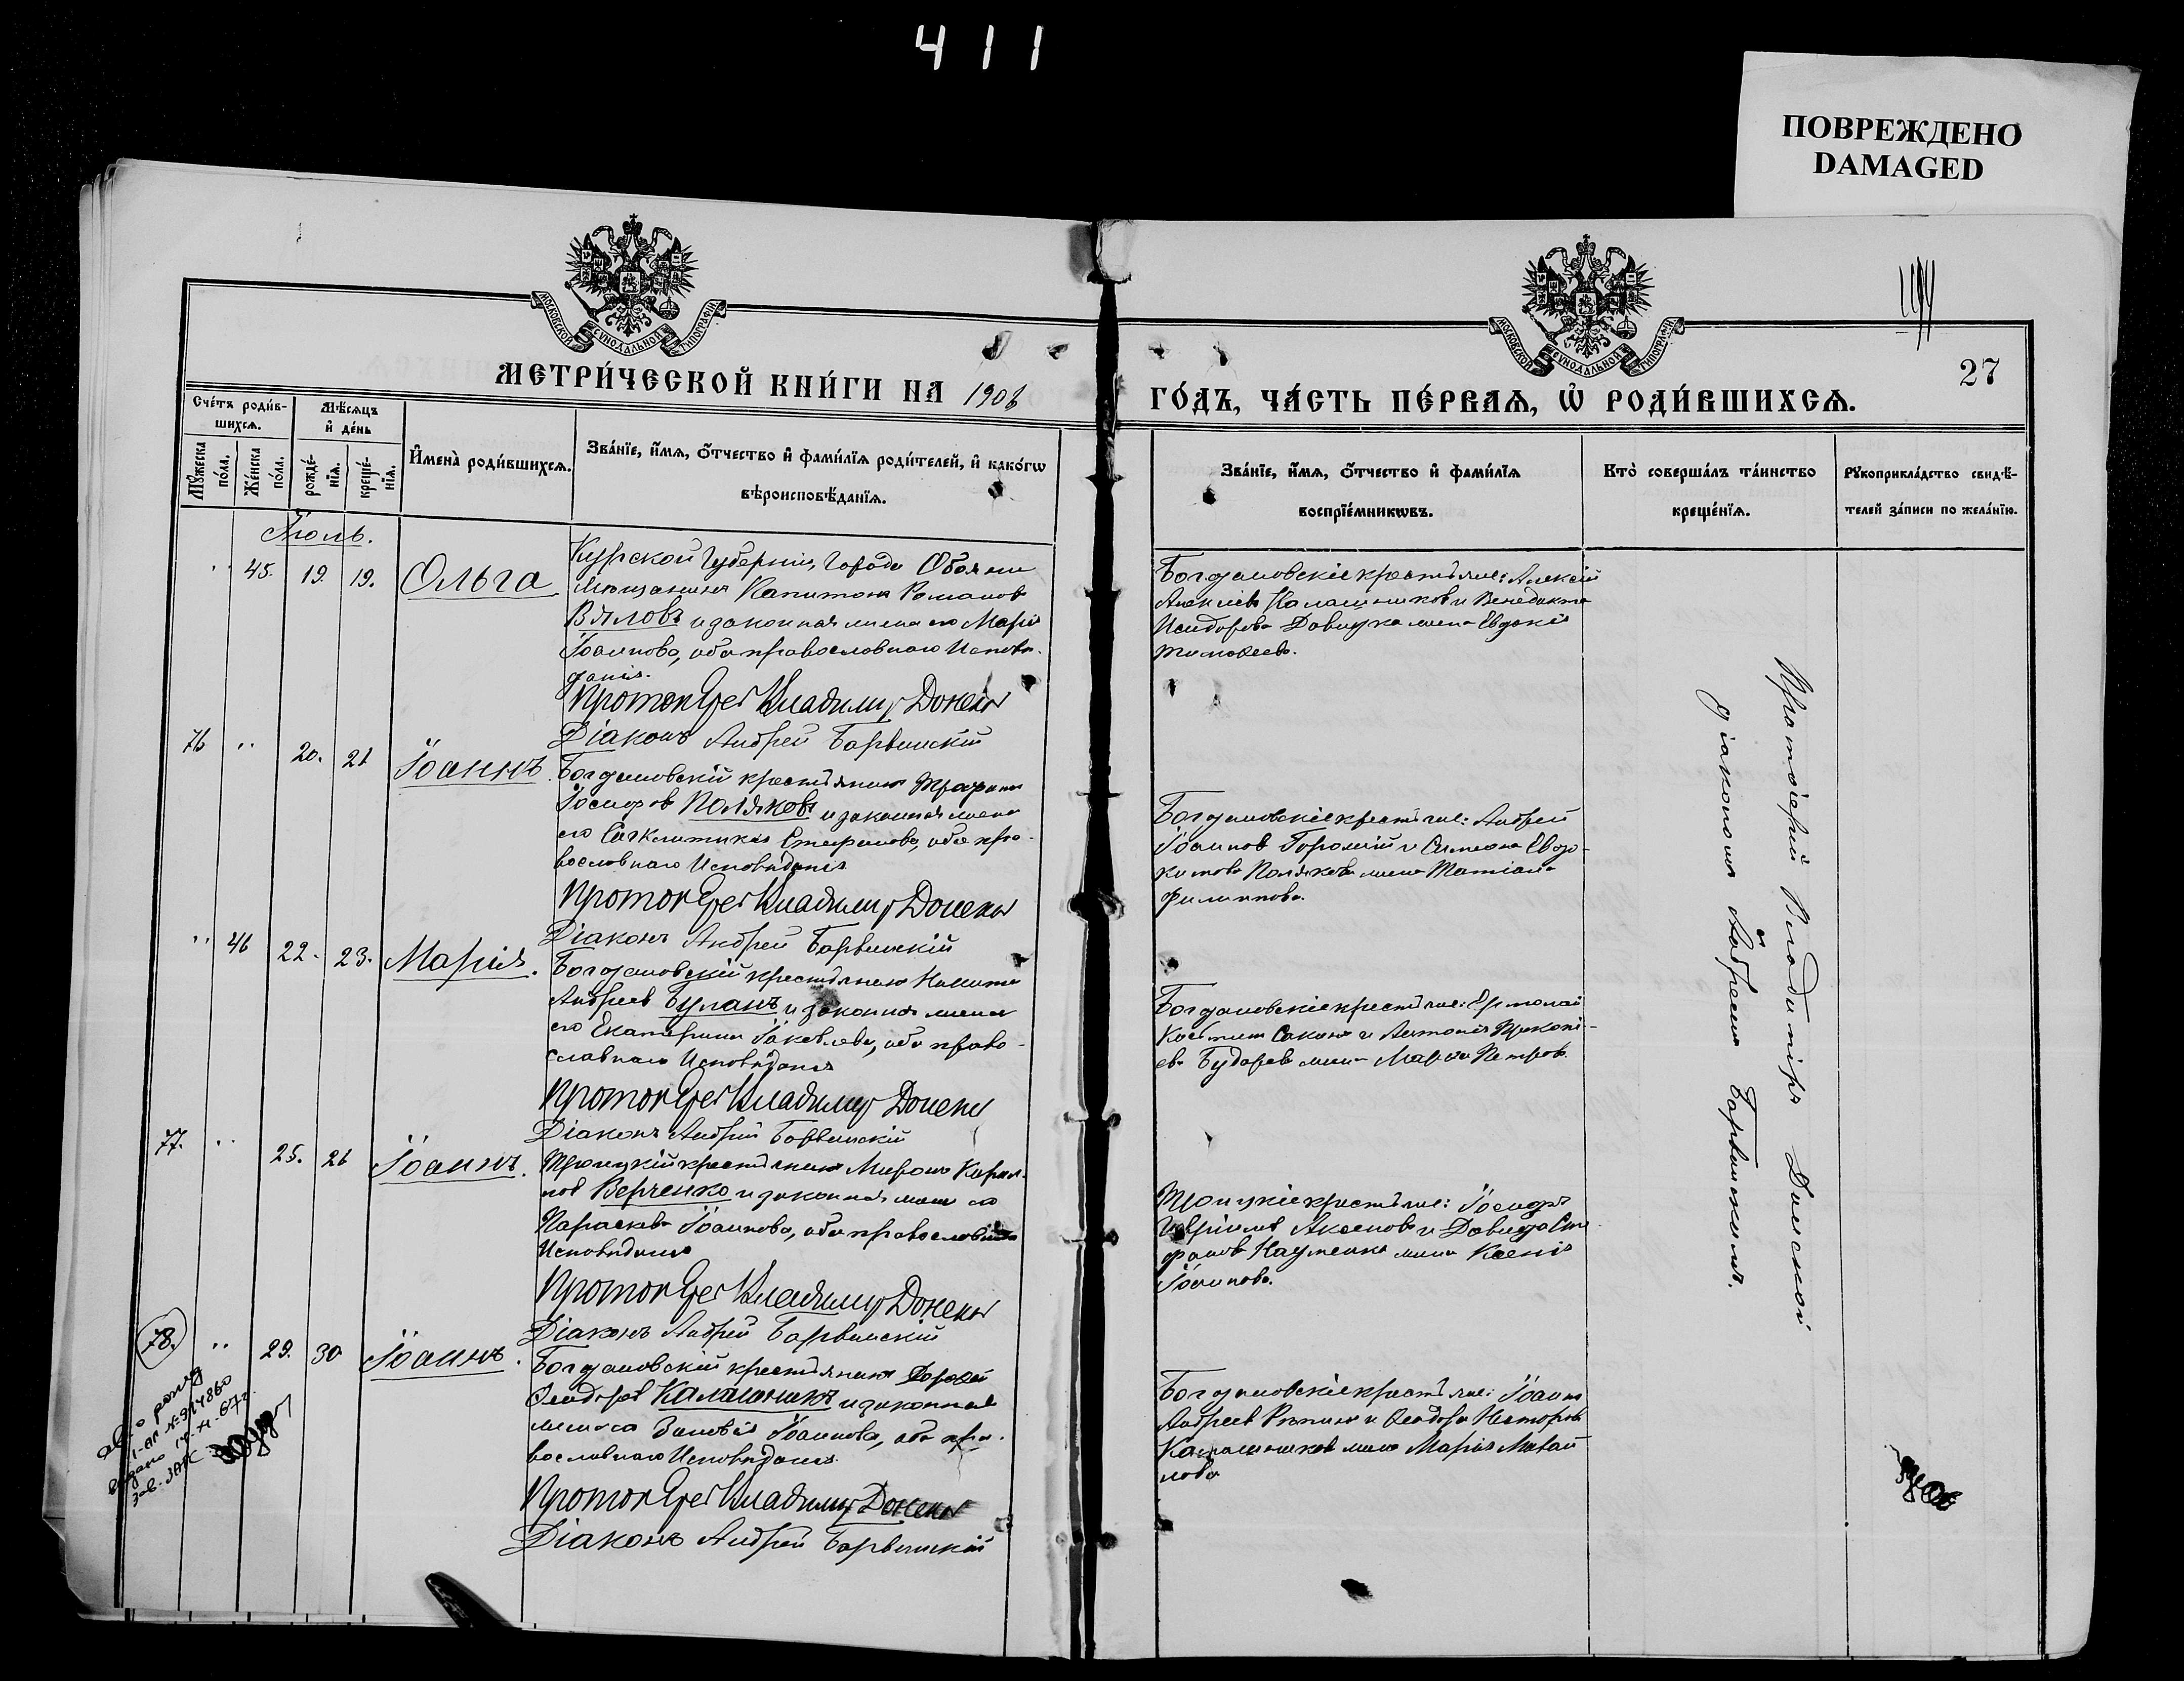 411
ПОВРЕЖДЕНО
DAMAGED
МОСКОВСКОЙ СѴНОДАЛЬНОЙ ТИПОГРАФІИ
МОСКОВСКОЙ СѴНОДАЛЬНОЙ ТИПОГРАФІИ
27
МЕТРИ́ЧЕСКОЙ КНИ́ГИ НА 1906
ГО́ДЪ, ЧА́СТЬ ПЕ́РВАѦ, Ѡ҆ РОДИ́ВШИХСѦ.
Сче́тъ роди́в-
шихсѧ.
Мꙋ́жеска по́ла.
Же́нска по́ла.
Мѣ́сѧцъ
и҆ де́нь
рожде́-
нїѧ.
креще́-
нїѧ.
И҆мена̀ роди́вшихсѧ.
Зва́нїе, и҆́мѧ, ѻ҆́тчество и҆ фами́лїѧ роди́телей, и҆ како́гѡ
вѣроисповѣ́данїѧ.
Зва́нїе, и҆́мѧ, ѻ҆́тчество и҆ фами́лїѧ
воспрїе́мникѡвъ.
Кто̀ соверша́лъ та́инство
креще́нїѧ.
Рꙋкоприкла́дство свидѣ́-
телей за́писи по жела́нїю.
Іюль.
45. 19. 19. Ольга
Курской губерніи, города Обояни
мѣщанинъ Капитонъ Романовъ
Вяловъ и законная жена его Марія
Іоаннова, оба православнаго Исповѣ-
данія.
Протоіерей Владимиръ
Діаконъ Андрей Барвинскій
Богдановскіе крестьяне: Алексій
Алексіевъ Калашниковъ и Венедикта
Исидорова жена Евдокія
Тимоѳеева.
76 " 20. 21 Іоаннъ.
Богдановскій крестьянинъ Трофимъ
Іосифовъ Поляковъ и законная жена
его Стефанова, оба пра-
вославнаго Исповѣданія
Протоіерей Владимиръ
Діаконъ Андрей Барвинскій
Богдановскіе крестьяне: Андрей
Іоанновъ и Симеона Евдо-
кимова Полякова жена Татіана
Филиппова.
" 46 22. 23. Марія.
Богдановскій крестьянинъ Никита
Андреевъ Буланъ и законная жена
его Екатерина Іаковлева, оба право-
славнаго Исповѣданія
Протоіерей Владимиръ
Діаконъ Андрей Барвинскій
Богдановскіе крестьяне: Ермолай
и Антонія Прокопі-
ева жена Марѳа Петров.
77. " 25. 26 Іоаннъ.
Троицкій крестьянинъ Миронъ Кирил-
ловъ Верченко и законная жена его
Параскева Іоаннова, оба православнаго
Исповѣданія
Протоіерей Владимиръ
Діаконъ Андрей Барвинскій
Троицкіе крестьяне: Іосифъ
Гавріиловъ Аксеновъ и Давида Сте-
фанова Науменка жена Ксенія
Іоаннова.
78. " 29. 30 Іоаннъ.
Богдановскій крестьянинъ Дороѳей
Ѳеодоровъ Калашникъ и законная
жена его Зиновія Іоаннова, оба пра-
вославнаго Исповѣданія.
Протоіерей Владимиръ
Діаконъ Андрей Барвинскій
Богдановскіе крестьяне: Іоаннъ
Андреевъ Рѣпинъ и Ѳеодора Несторова
Калашникова жена Марія Михай-
лова
Протоіерей Владиміръ
съ діакономъ Андреемъ Барвинскимъ.